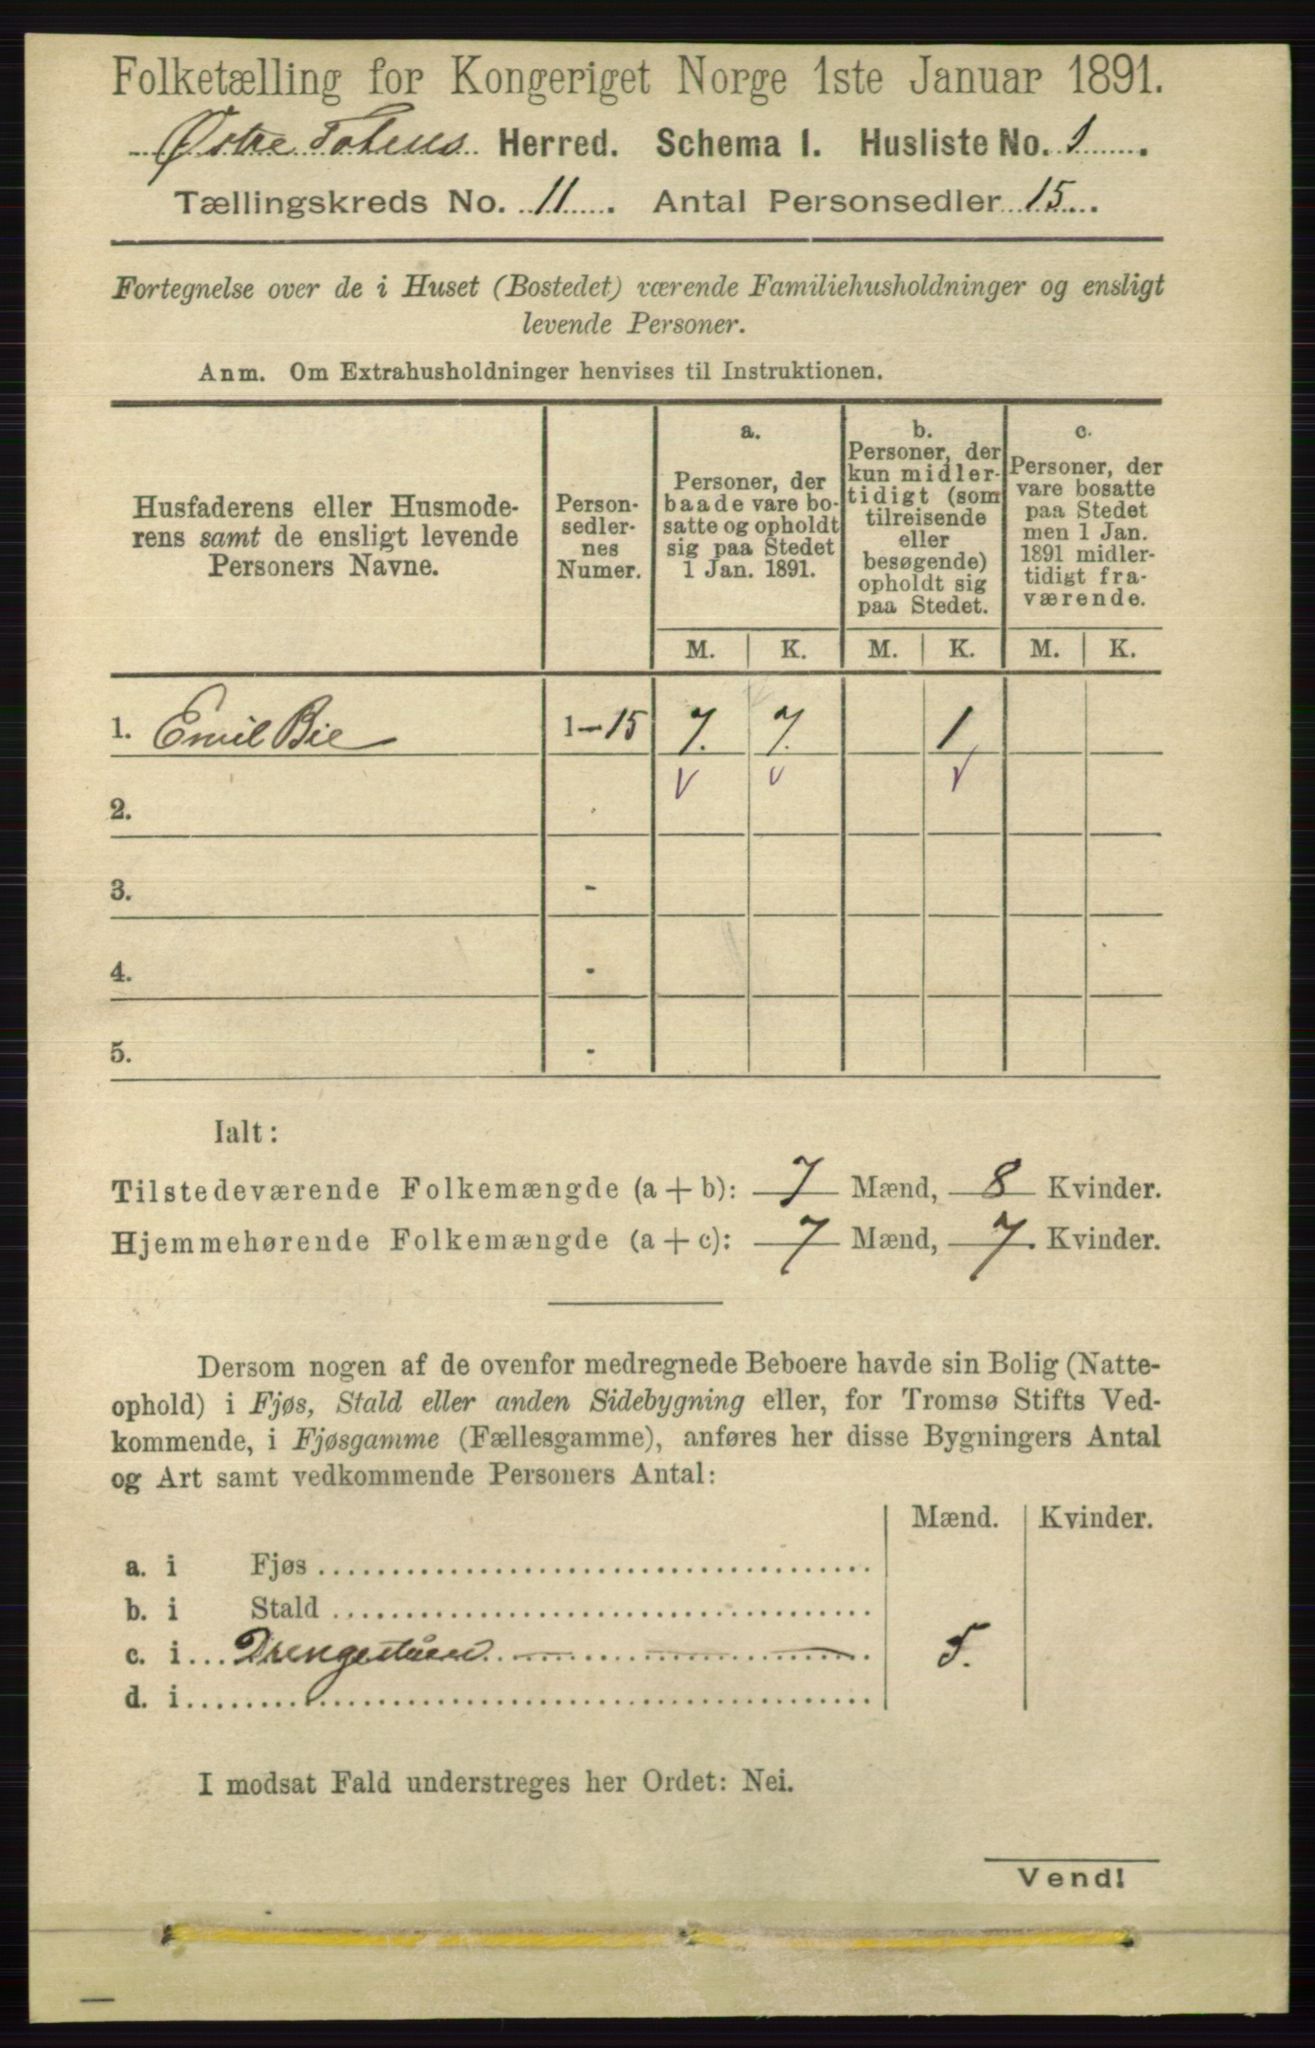 Folketælling for Kongeriget Norge 1ste Januar 1891.
Østre Totens Herred. Schema I. Husliste No. 1.
Tællingskreds No. 11. Antal Personsedler 15.
Fortegnelse over de i Huset (Bostedet) værende Familiehusholdninger og ensligt
levende Personer.
Anm. Om Extrahusholdninger henvises til Instruktionen.
Husfaderens eller Husmode-
rens samt de ensligt levende
Personers Navne.
Person-
sedler-
nes
Numer.
a.
Personer, der
baade vare bo-
satte og opholdt
sig paa Stedet
1 Jan. 1891.
b.
Personer, der
kun midler-
tidigt (som
tilreisende
eller
besøgende)
opholdt sig
paa Stedet.
c.
Personer, der
vare bosatte
paa Stedet
men 1 Jan.
1891 midler-
tidigt fra-
værende.
M. K. M. K. M. K.
1. Emil Bie 1-15 7. 7. 1
2.
3. -
4. -
5. -
Ialt:
Tilstedeværende Folkemængde (a + b): 7 Mænd, 8 Kvinder.
Hjemmehørende Folkemængde (a + c): 7 Mænd, 7. Kvinder.
Dersom nogen af de ovenfor medregnede Beboere havde sin Bolig (Natte-
ophold) i Fjøs, Stald eller anden Sidebygning eller, for Tromsø Stifts Ved-
kommende, i Fjøsgamme (Fællesgamme), anføres her disse Bygningers Antal
og Art samt vedkommende Personers Antal:
Mænd. Kvinder.
a. i Fjøs
b. i Stald
c. i Drengestuen 5.
d. i
I modsat Fald understreges her Ordet: Nei.
Vend!